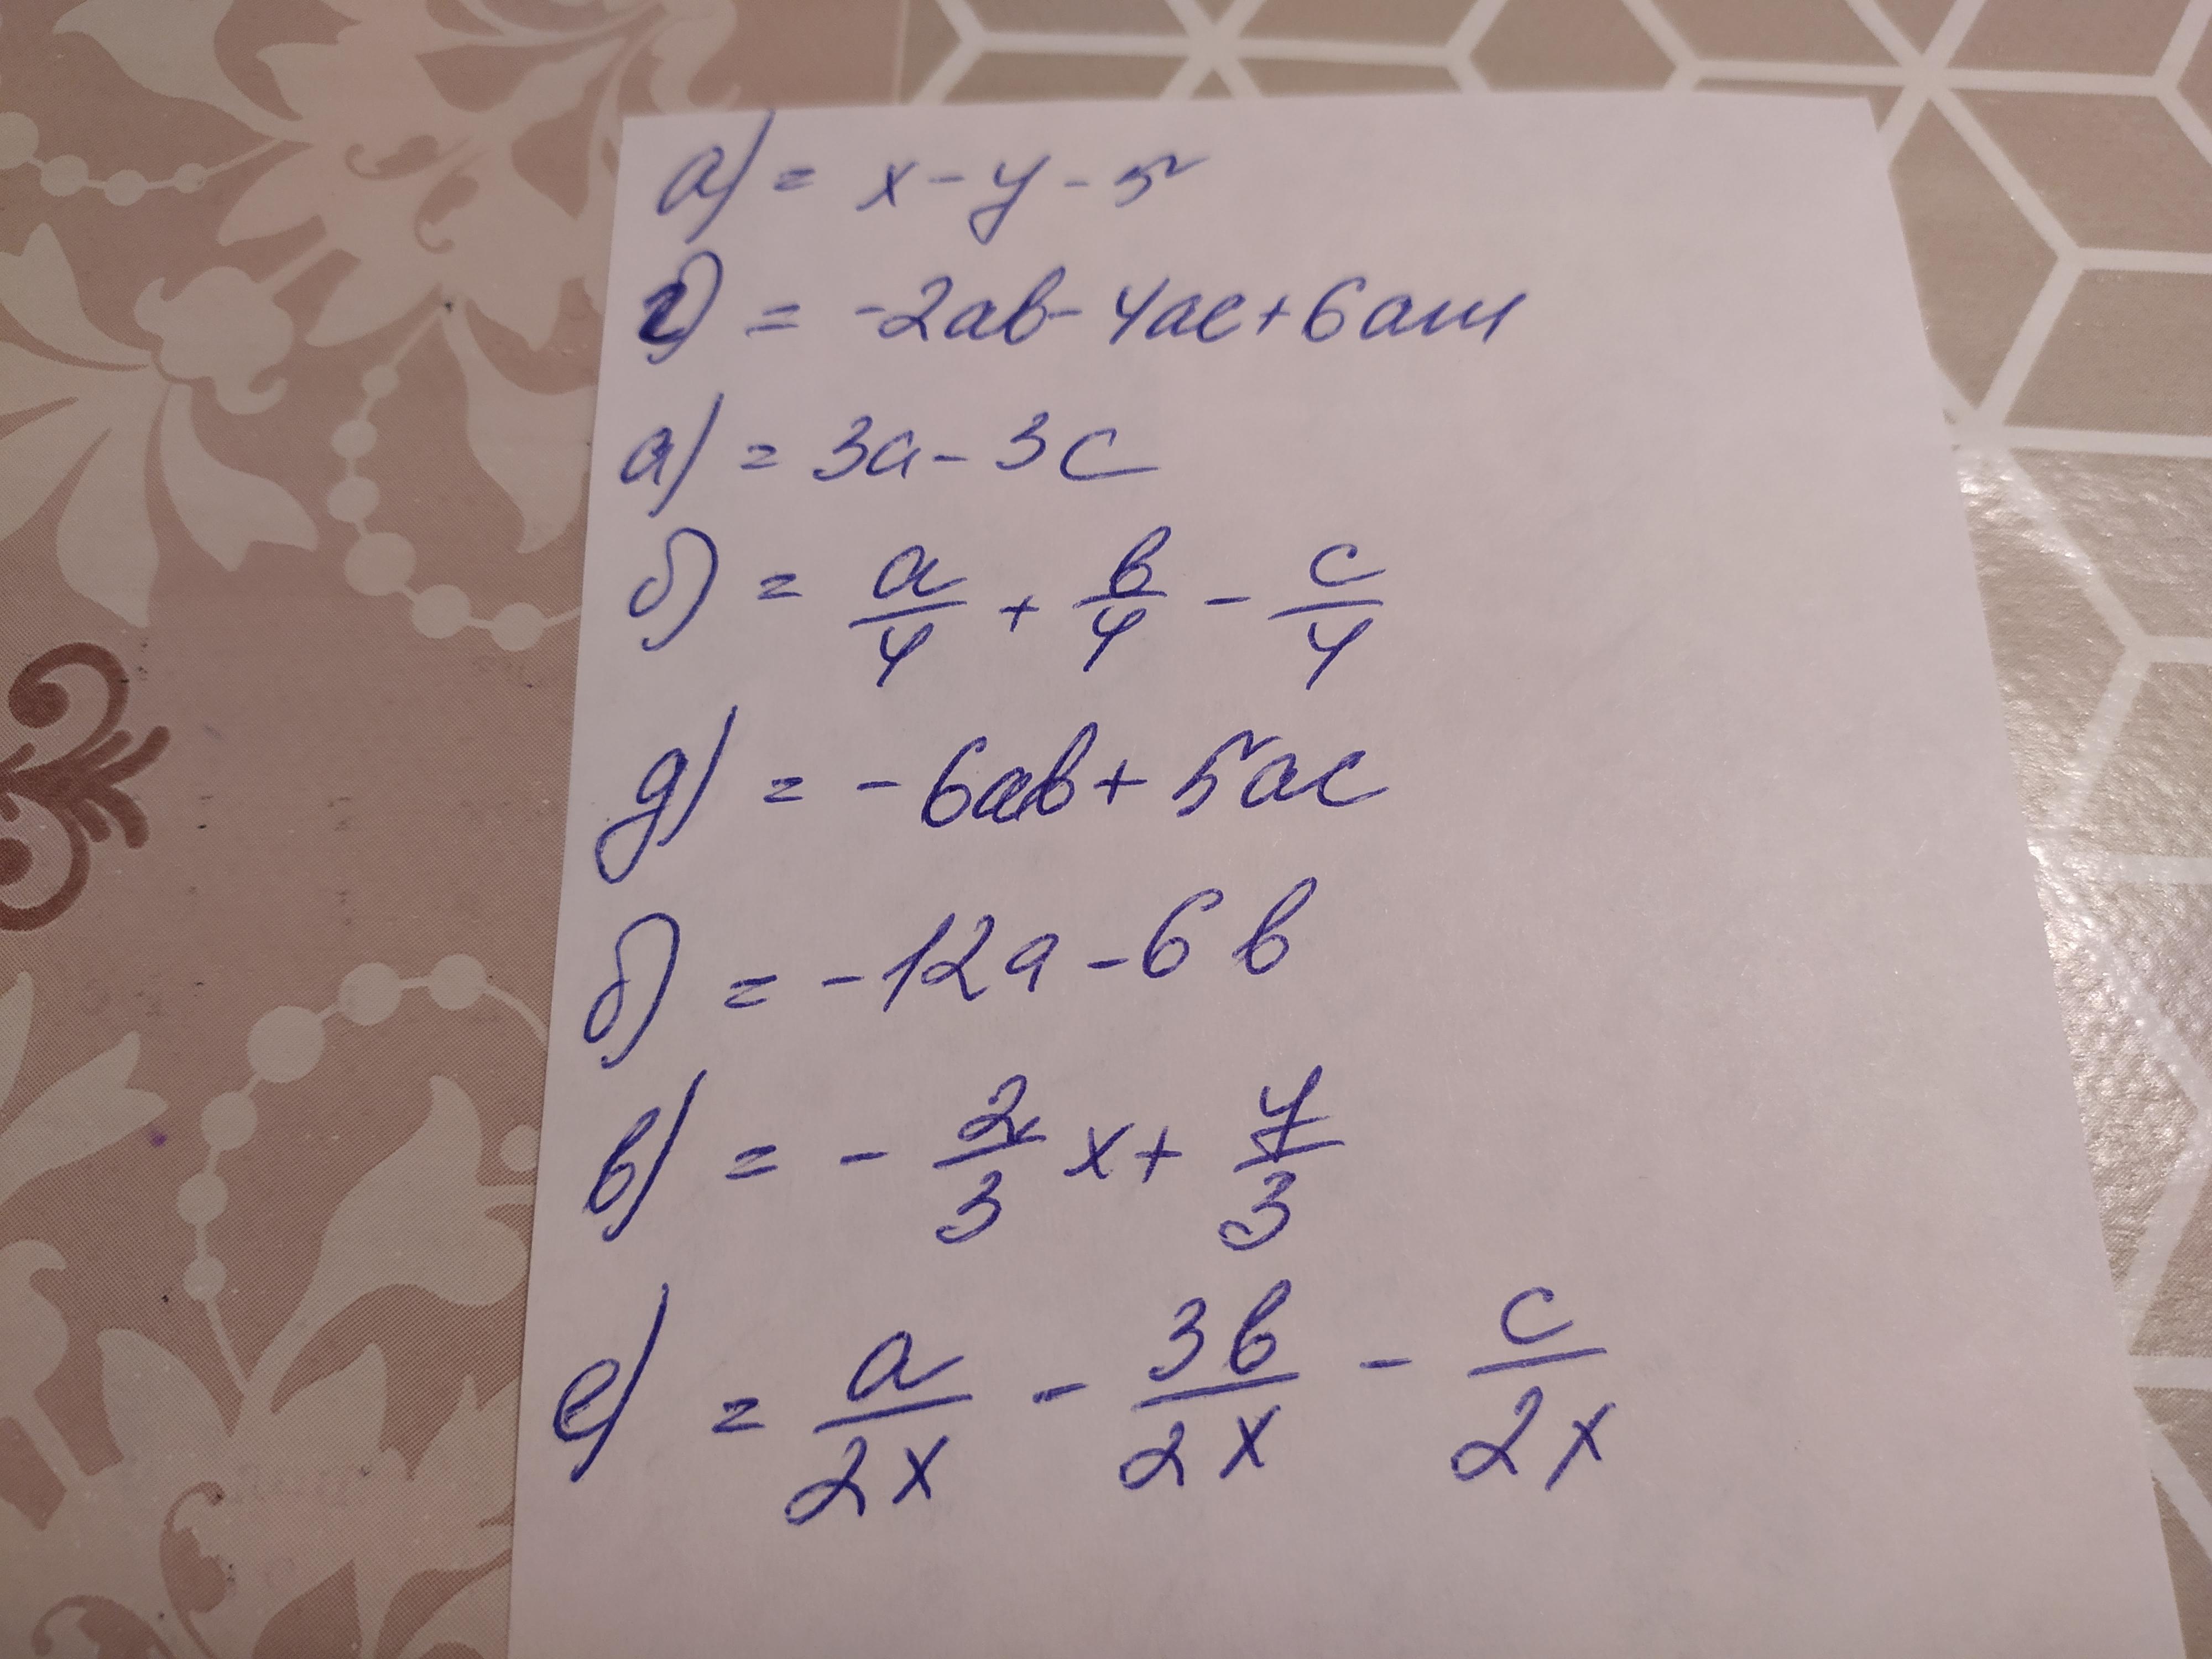 а) = x - y - 5
г) = -2ab - 4ac + 6am
а) = 3a - 3c
б) = a/4 + b/4 - c/4
д) = -6ab + 5ac
б) = -12a - 6b
в) = - 2/3 x + y/3
е) = a/2x - 3b/2x - c/2x